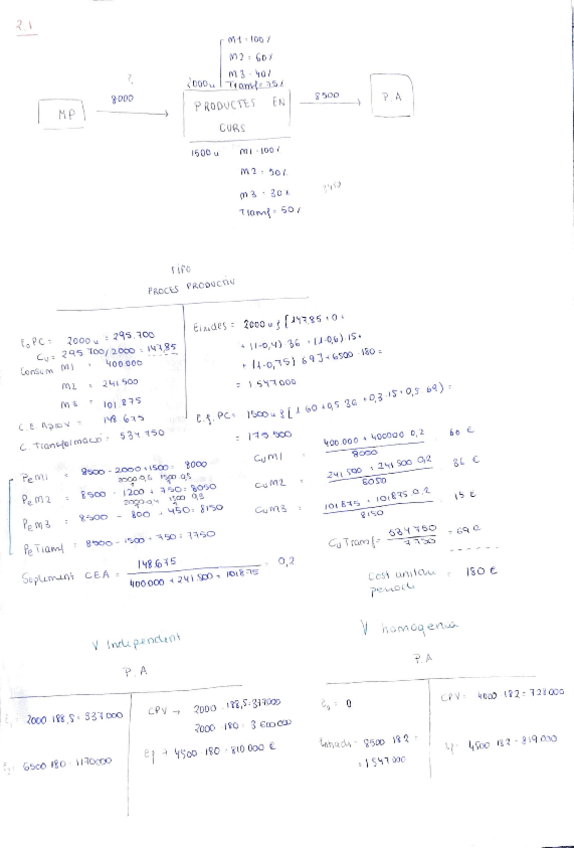 2.1
M1 = 100%
M2 = 60%
M3 = 40%
2000u Transf = 75%
?
8000
MP
PRODUCTES EN
CURS
8500
P.A
1500u M1 = 100%
M2 = 50%
M3 = 30%
Transf = 50%
FIFO
PROCES PRODUCTIU
E0PC = 2000u = 295.700
Cu = 295.700/2000 = 147,85
Consum M1 = 400.000
M2 = 241 500
M3 = 101 875
C.E. Aprov = 148 675
C. Transformació = 534 750
Eixides = 2000u {[147,85 + 0 +
+ (1-0,4) 36 + (1-0,6) 15 +
+ (1-0,75) 69] + 6500 · 180 =
= 1 547 000
E.f. PC = 1500u {1 60 + 0,5 36 + 0,3 15 + 0,5 69) =
= 175 500
PeM1 = 8500 - 2000 + 1500 = 8000
PeM2 = 8500 - 1200 + 750 = 8050
PeM3 = 8500 - 800 + 450 = 8150
PeTransf = 8500 - 1500 + 750 = 7750
CuM1 = 400 000 + 400 000 0,2 / 8000 60 €
CuM2 = 241 500 + 241 500 0,2 / 8050 36 €
CuM3 = 101 875 + 101 875 0,2 / 8150 15 €
CuTransf = 534 750 / 7750 = 69 €
Cost unitari període = 180 €
Suplement CEA = 148 675 / 400 000 + 241 500 + 101 875 = 0,2
V Independent
P.A
2000 188,5 = 377 000
6500 180 = 1170 000
CPV → 2000 · 188,5 = 377 000
2000 · 180
Ef → 4500 180 = 810 000 €
V homogenia
P.A
E0 = 0
8500 182 =
= 1 547 000
CPV = 4000 182 = 728 000
4500 182 = 819 000